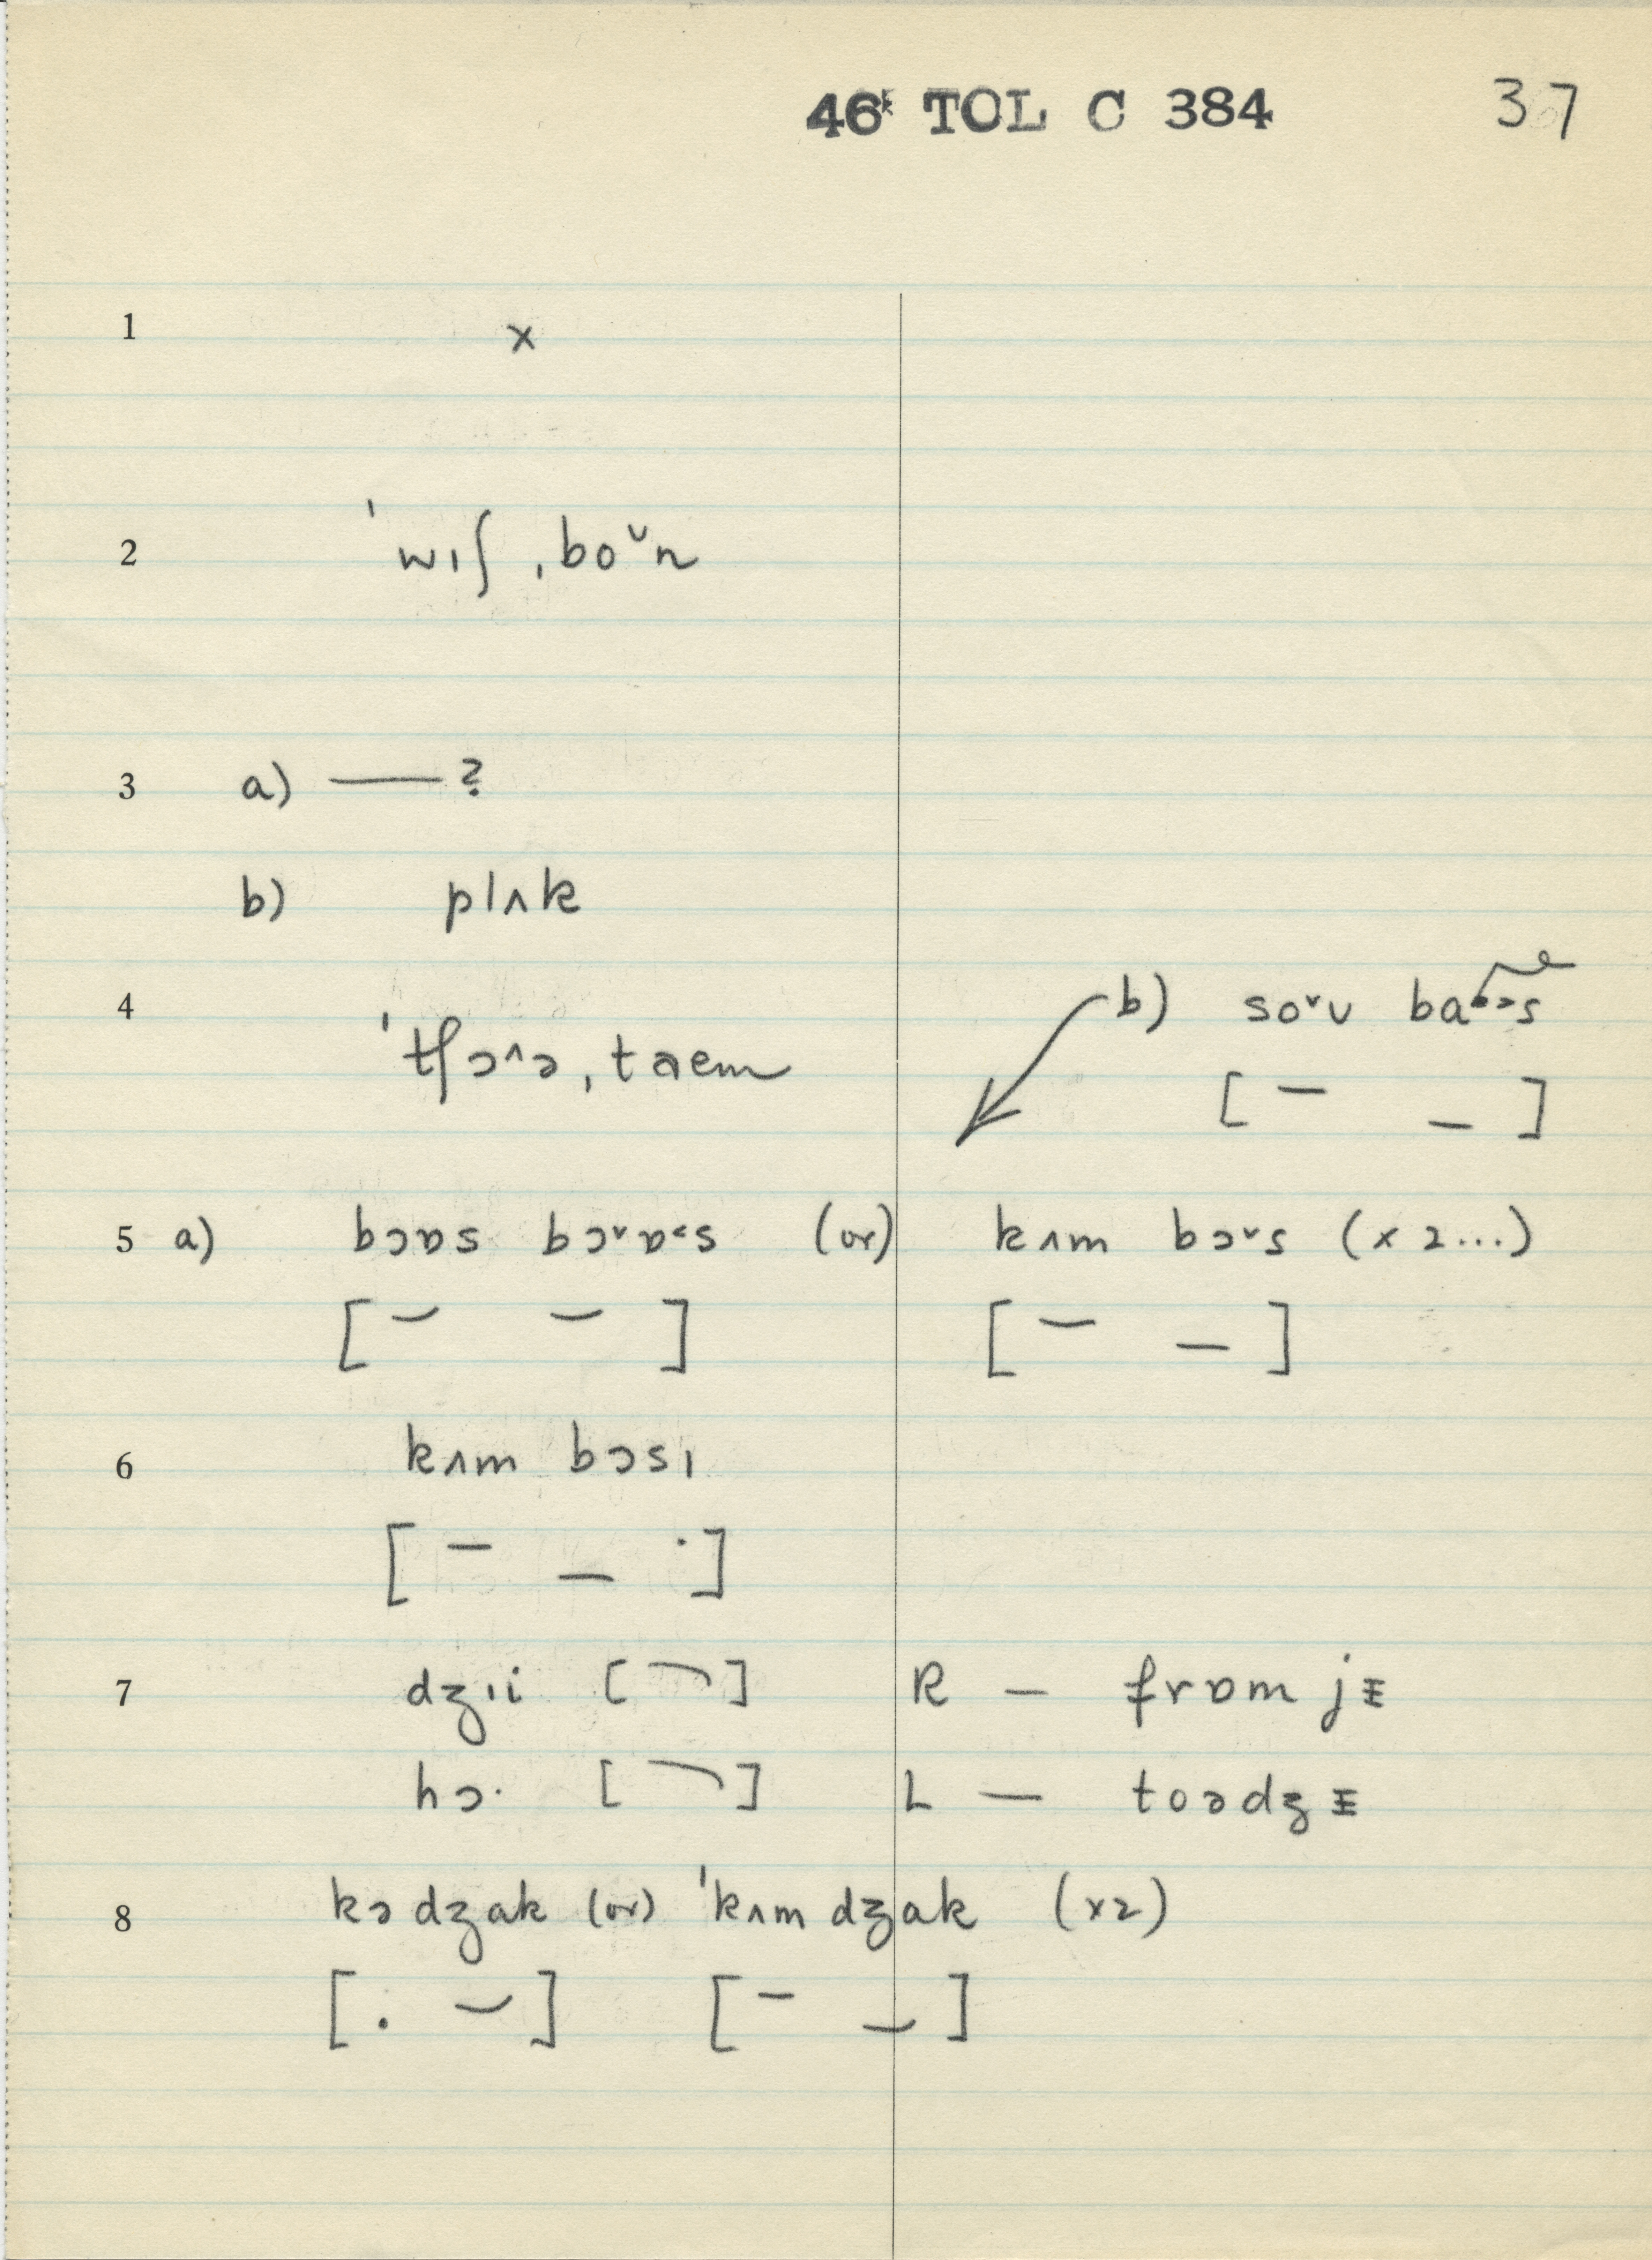 46ᵏ TOL C 384 37
1 x
2 ˈwɪʃ ˌboᵛn
3 a) —— ?
b) plʌk
4 ˈtʃɔ^ə ˌtaem
b) so˅ʊ ba s
[ – _ ]
5 a) bɔɒs bɔ˅ɒ˂s (or) kʌm bɔ˅s (x 2...)
[ – – ] [ – _ ]
6 kʌm bɔsɪ
[ – _ · ]
7 dʒɪi [ ⌝ ] R – frɒm jᵻ
hɔ· [ ⌝ ] L — toədʒᵻ
8 kə dʒak (or) ˈkʌm dʒak (x2)
[ . – ] [ – _ ]